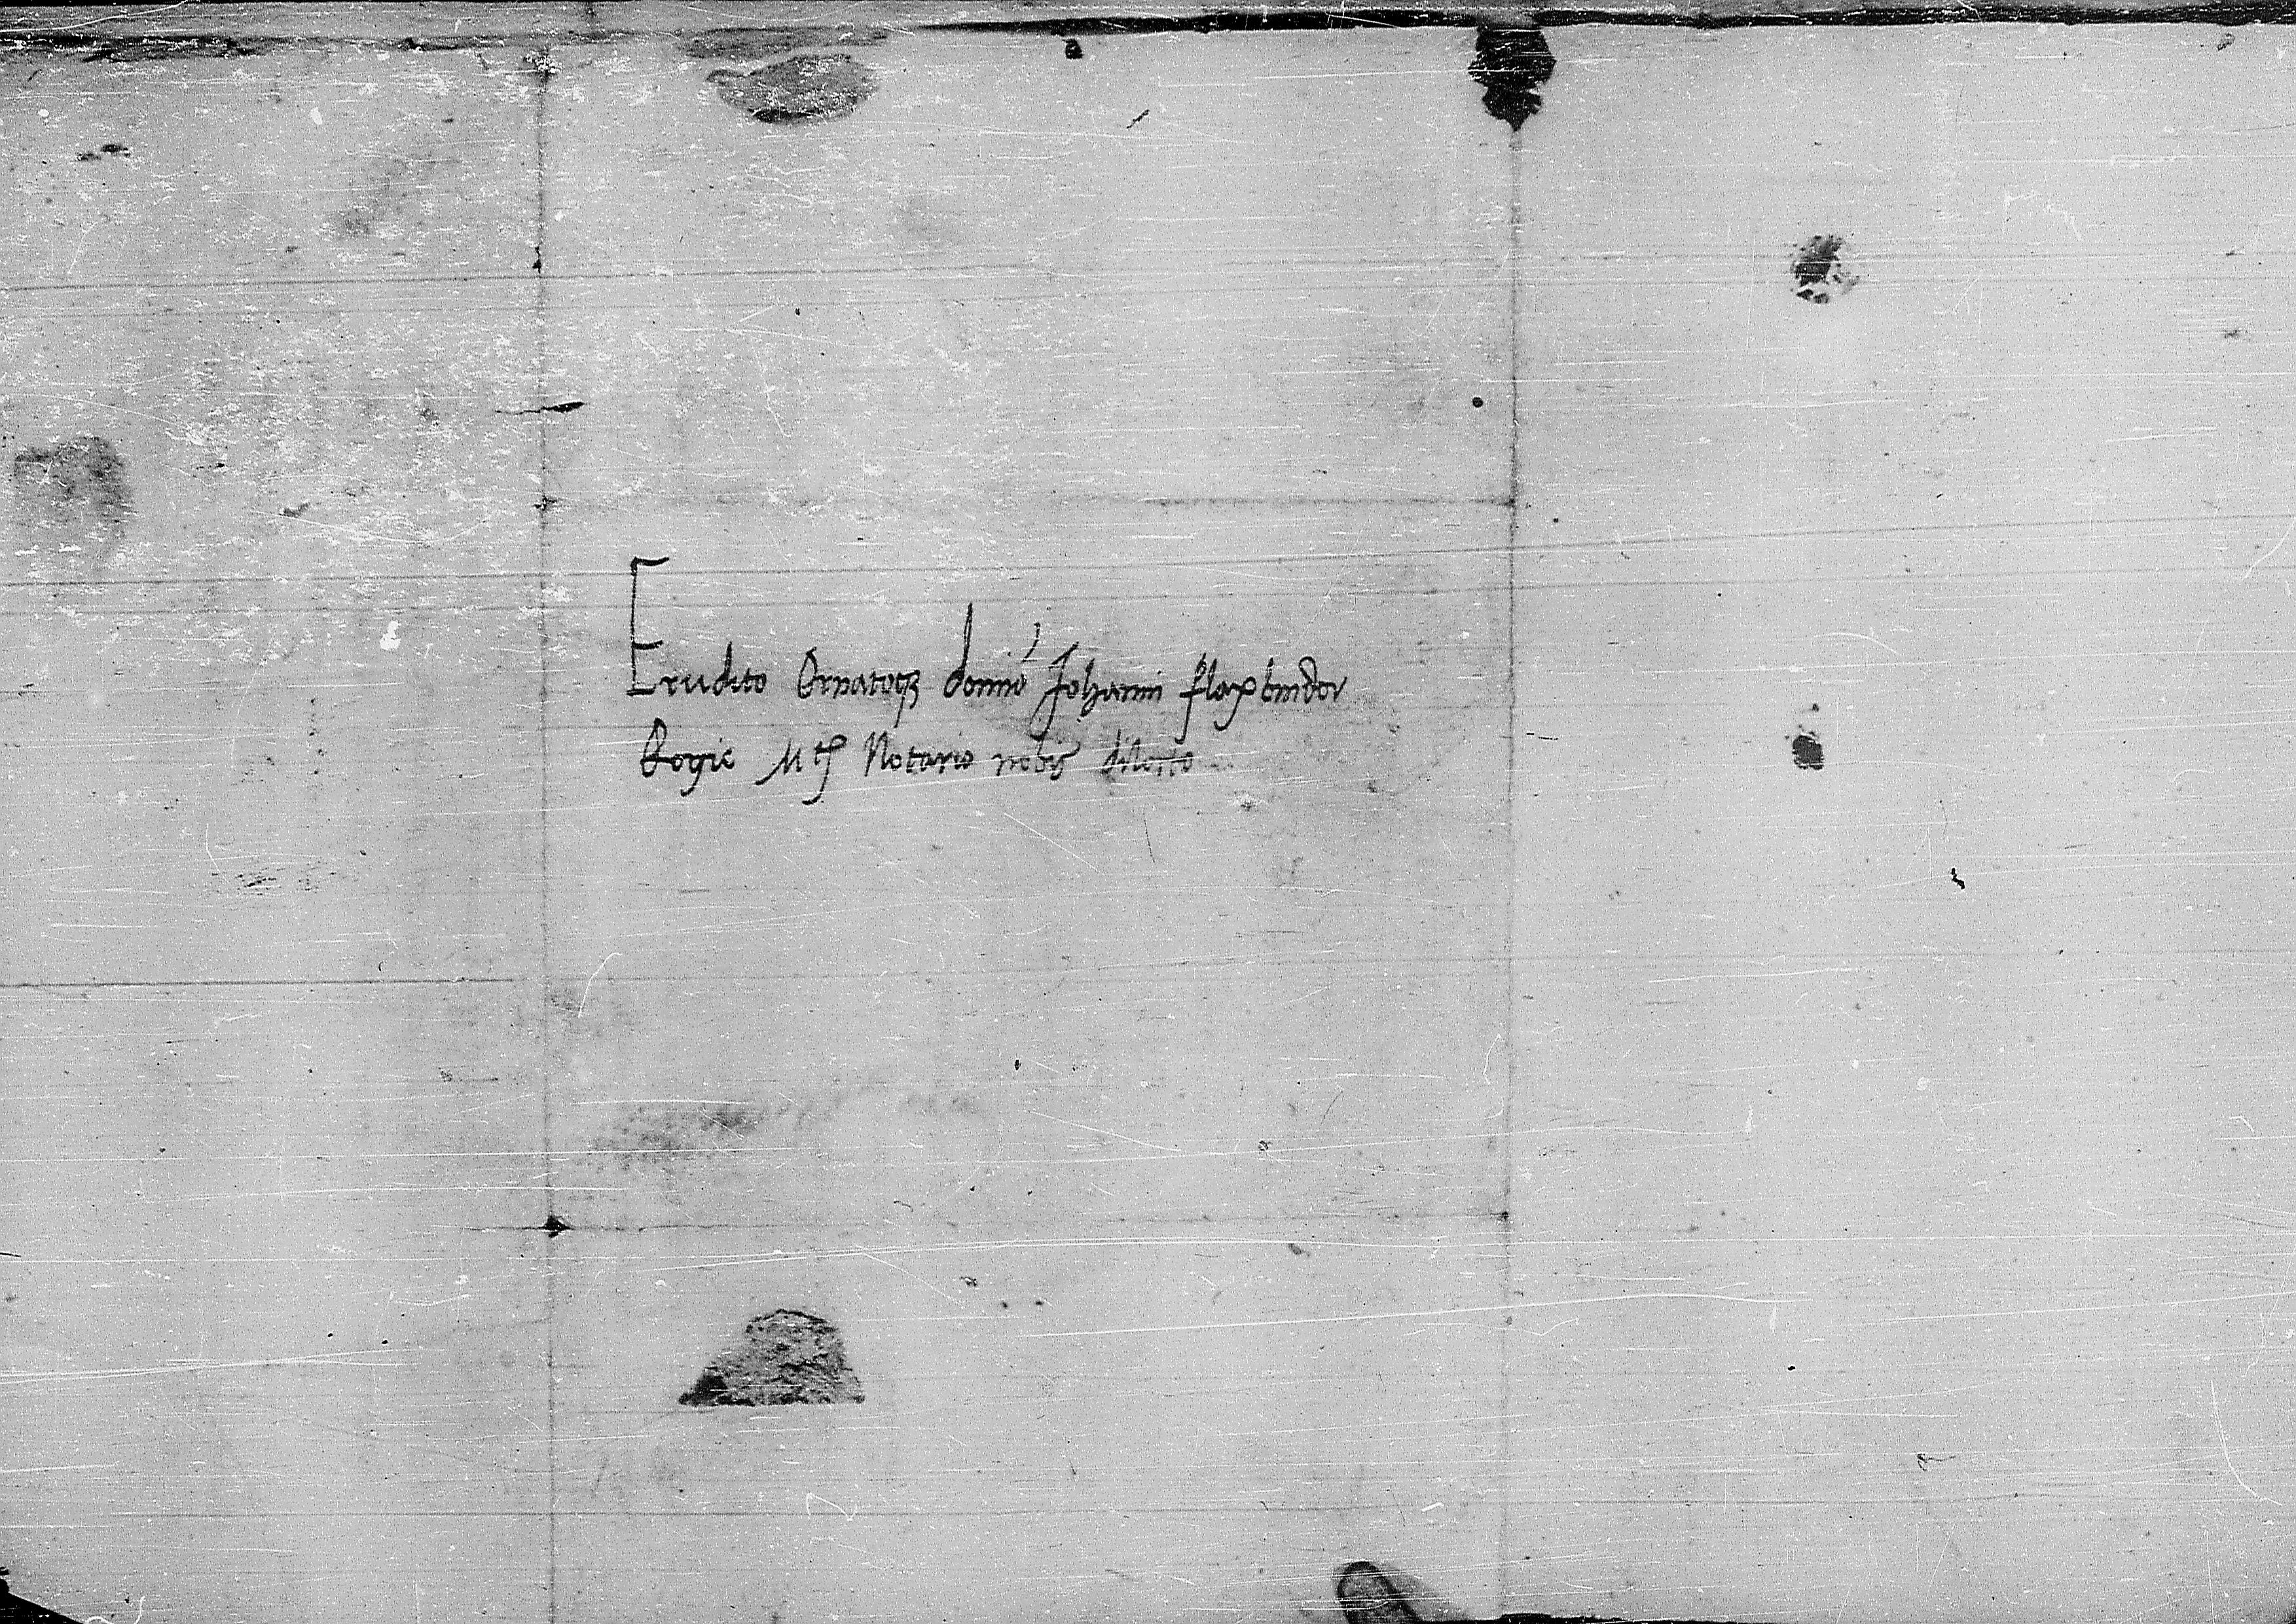 Erudito Ornatoqꝫ domino Johanni flaxbinder
Regie Mtis Notario nobis dilecto